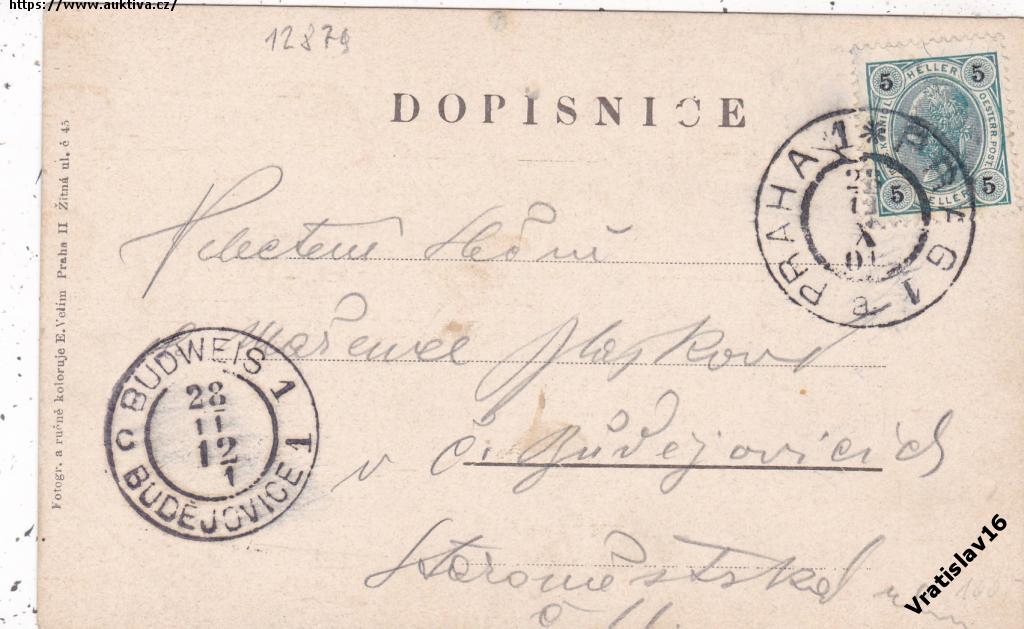 https://www.auktiva.cz/
12879
DOPISNICE
5 HELLER 5
KÖNIGL. OESTERR. POST.
5 HELLER 5
PRAHA 1 * PRAG 1
28
II
X
01
Fotogr. a ručně koloruje E. Velím Praha II Žitná ul. č 45
Slečně
Mařence
v Č. Budějovicích
BUDWEIS 1
28
II
12
1
BUDĚJOVICE 1
Staroměstská
č 11.
Vratislav16